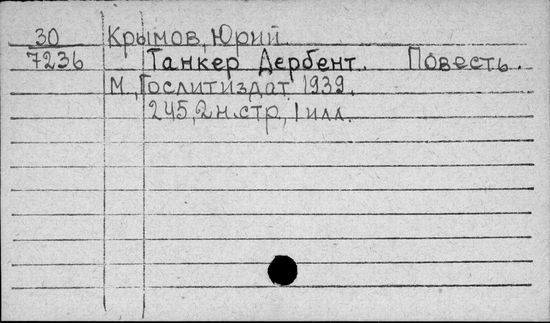 30 Крымов, Юрий
7236 Танкер Дербент. Повесть.
М., Гослитиздат 1939.
245, 2 н.стр, 1 илл.